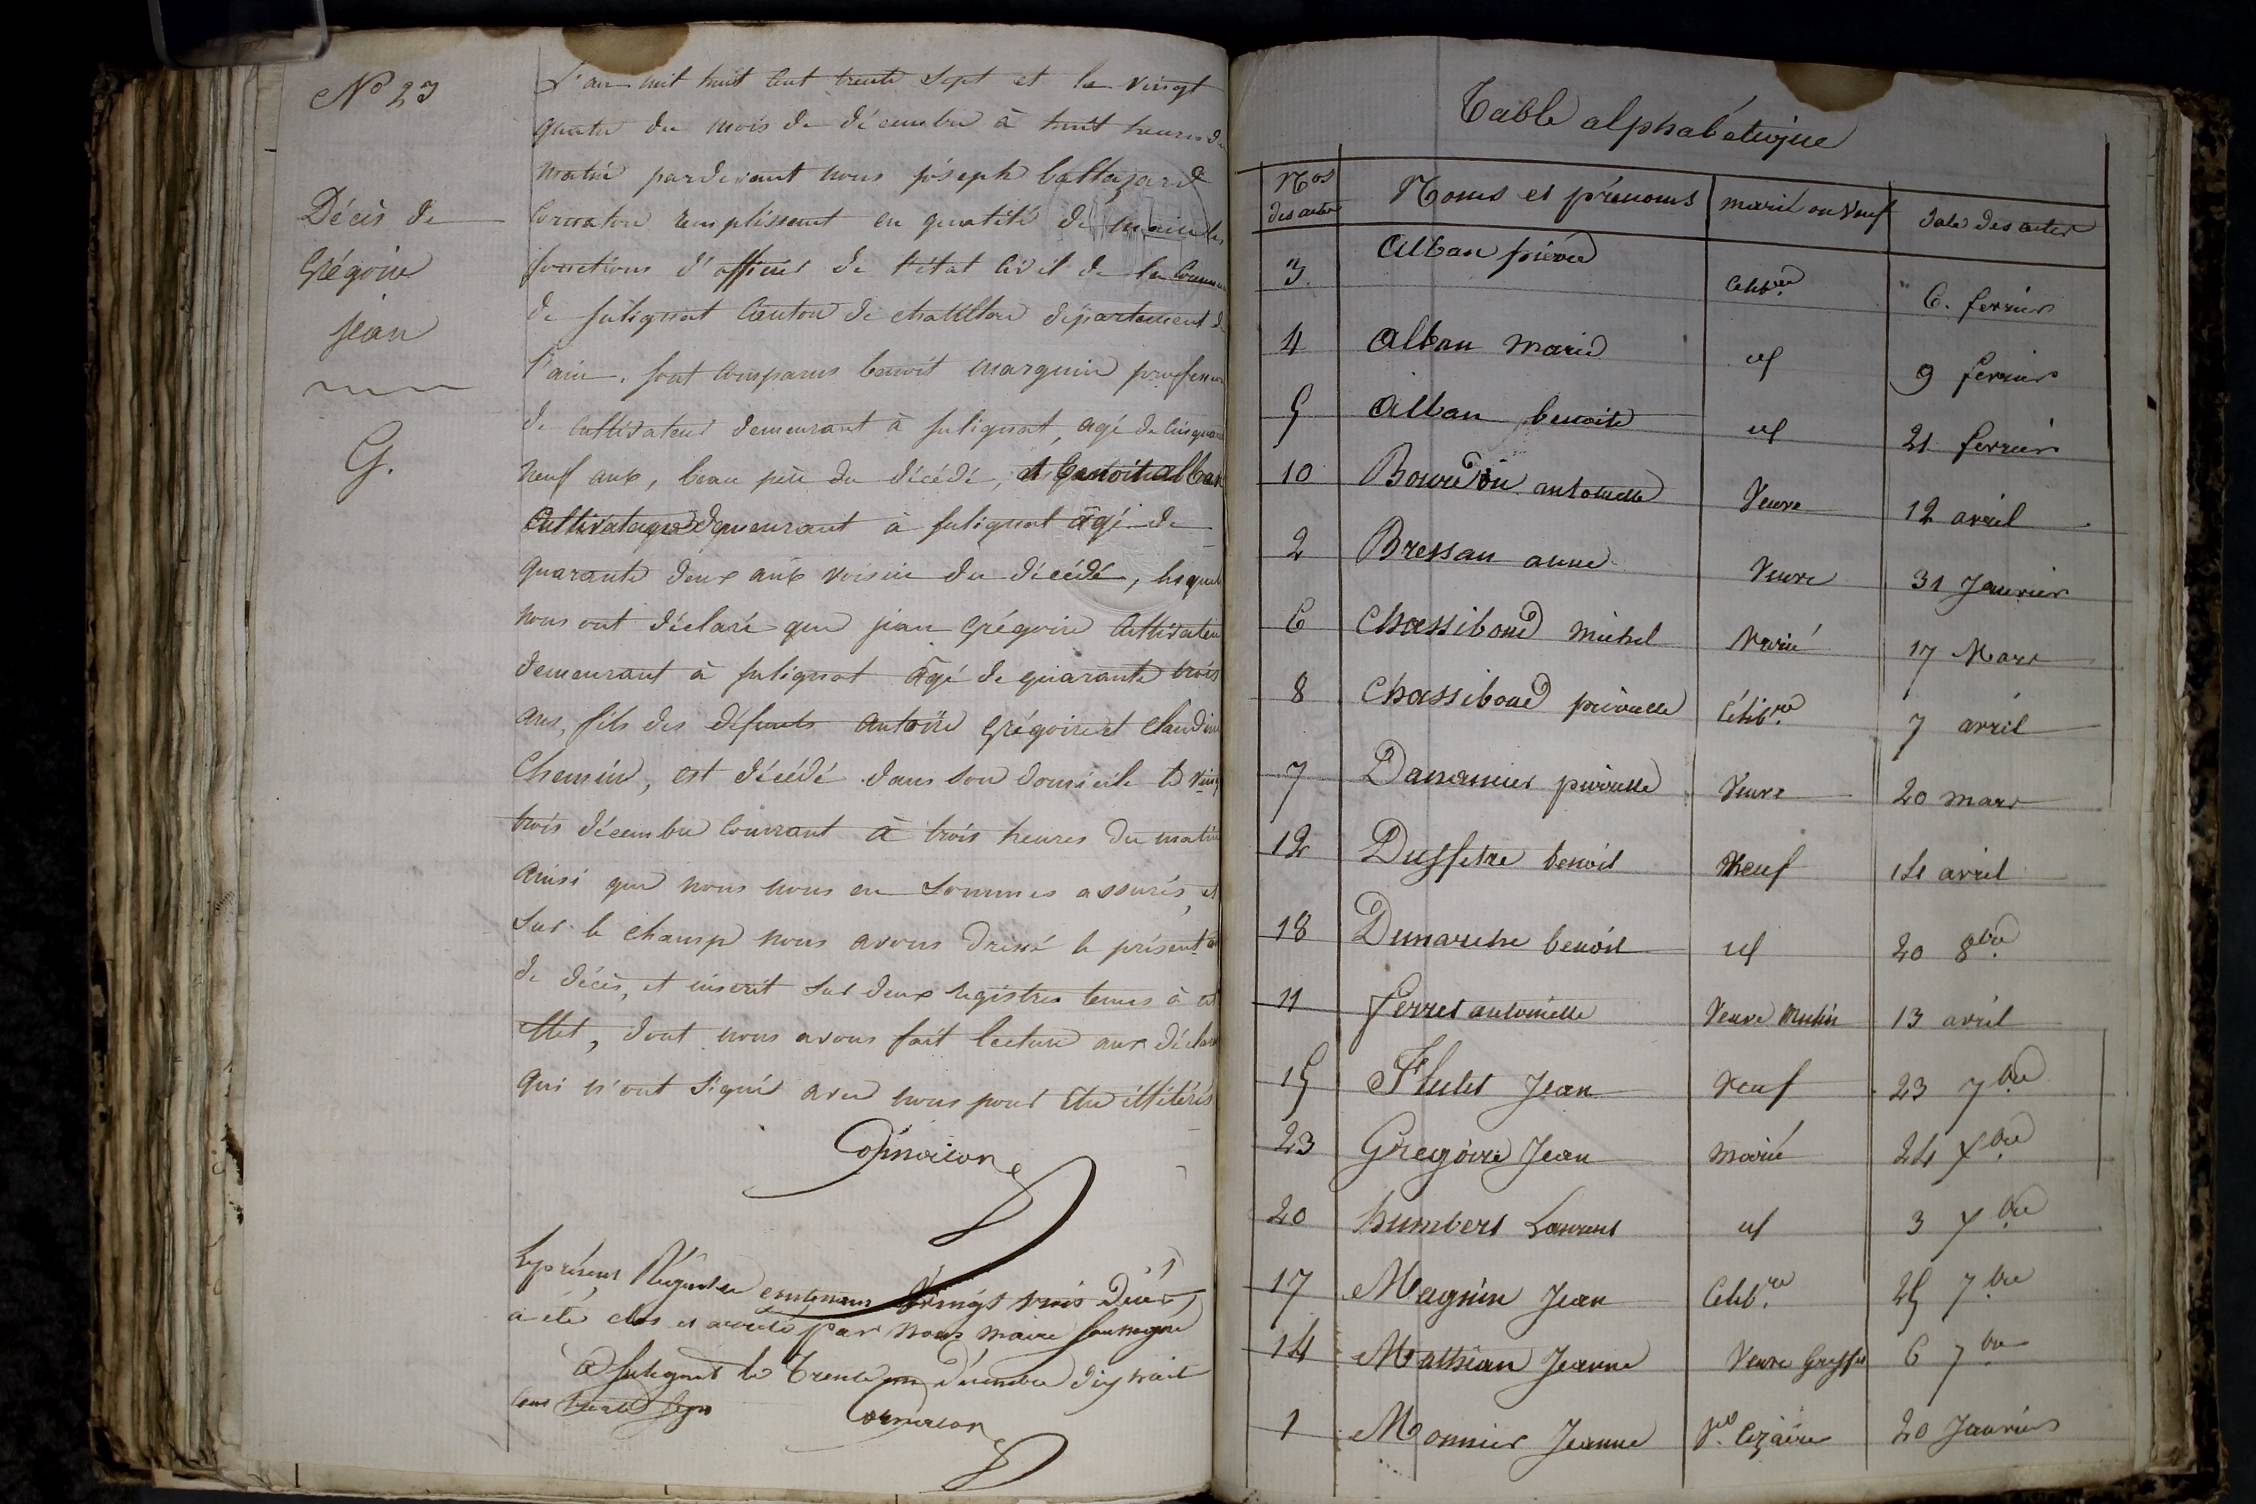 No 23
Décès de
Grégoire
jean
G.
L'an mil huit cent trente sept et le vingt
quatre du mois de décembre à huit heures du
matin pardevant nous joseph baltazard
Cornaton remplissant en qualité de maire les
fonctions d'officier de l'état civil de la Commune
de Sulignat Canton de chatillon département de
l'ain. sont comparus benoit marguin profession
de cultivateur demeurant à sulignat, agé de cinquante
neuf ans, beau père du décédé, et benoit alban
cultivateur demeurant à sulignat agé de
quarante deux ans voisin du décédé, lesquels
nous ont déclaré que jean grégoire cultivateur
demeurant à sulignat agé de quarante trois
ans, fils des défunts antoine grégoire et claudine
Chemin, est décédé dans son domicile le vingt
trois décembre courrant à trois heures du matin
ainsi que nous nous en sommes assurés, et
sur le champ nous avons dréssé le présent
de décès, et inscrit sur deux registres tenus à cet
effet, dont nous avons fait lecture aux
qui n'ont signé avec nous pour être illitérés
Cornaton
Le présent Régistre contenant vingt trois Décès
a été clos et arrêté par nous maire soussigné
a Sulignat le trente un décembre dix huit
cent trente sept
Cornaton
Table alphabétique
Nos des actes Noms et prénoms marié ou Veuf date des actes
3 Alban pierre Celibre 6. fevrier
4 Alban marie id 9 fevrier
5 Alban benoite id 21 fevrier
10 antoinette Veuve 12 avril
2 Bressan anne Veuve 31 Janvier
6 Chassiboud michel Marié 17 Mars
8 Chassiboud pierrette Célibre 7 avril
7 pierrette Veuve 20 mars
12 Duffetre benoit Veuf 14 avril
18 benoit id 20 8bre
11 ferret antoinette Veuve 13 avril
15 Flutet Jean Veuf 23 7bre
23 Gregoire Jean marié 24 Xbre
20 humbert Laurent id 3 Xbre
17 Magnin Jean Celib.re 25 7bre
14 Mathian Jeanne Veuve 6 7bre
1 Monnier Jeanne Ve. Cézaire 20 Janvier